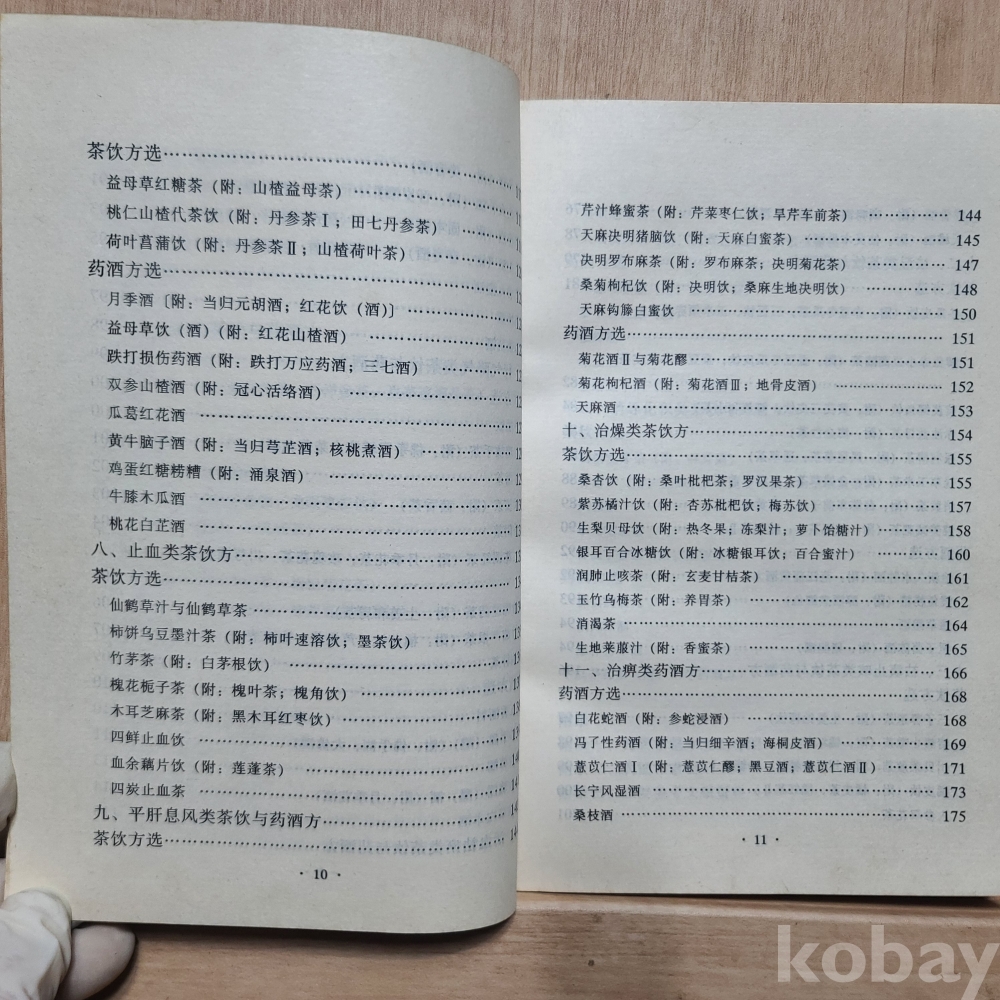 茶饮方选……………………………………………1
益母草红糖茶（附：山楂益母茶）……………………1
桃仁山楂代茶饮（附：丹参茶Ⅰ；田七丹参茶）………1
荷叶菖蒲饮（附：丹参茶Ⅱ；山楂荷叶茶）……………12
药酒方选……………………………………………12
月季酒〔附：当归元胡酒；红花饮（酒）〕……………12
益母草饮（酒）（附：红花山楂酒）……………………12
跌打损伤药酒（附：跌打万应药酒；三七酒）…………12
双参山楂酒（附：冠心活络酒）………………………12
瓜葛红花酒…………………………………………12
黄牛脑子酒（附：当归芎芷酒；核桃煮酒）……………12
鸡蛋红糖崂糟（附：涌泉酒）…………………………12
牛膝木瓜酒…………………………………………13
桃花白芷酒…………………………………………13
八、止血类茶饮方……………………………………13
茶饮方选……………………………………………13
仙鹤草汁与仙鹤草茶…………………………………13
柿饼乌豆墨汁茶（附：柿叶速溶饮；墨茶饮）…………13
竹茅茶（附：白茅根饮）………………………………13
槐花栀子茶（附：槐叶茶；槐角饮）……………………13
木耳芝麻茶（附：黑木耳红枣饮）……………………13
四鲜止血饮…………………………………………14
血余藕片饮（附：莲蓬茶）……………………………14
四炭止血茶…………………………………………14
九、平肝息风类茶饮与药酒方…………………………14
茶饮方选……………………………………………14
· 10 ·
芹汁蜂蜜茶（附：芹菜枣仁饮；旱芹车前茶）………144
天麻决明猪脑饮（附：天麻白蜜茶）…………………145
决明罗布麻茶（附：罗布麻茶；决明菊花茶）………147
桑菊枸杞饮（附：决明饮；桑麻生地决明饮）………148
天麻钩藤白蜜饮……………………………………150
药酒方选……………………………………………151
菊花酒Ⅱ与菊花醪…………………………………151
菊花枸杞酒（附：菊花酒Ⅲ；地骨皮酒）……………152
天麻酒………………………………………………153
十、治燥类茶饮方……………………………………154
茶饮方选……………………………………………155
桑杏饮（附：桑叶枇杷茶；罗汉果茶）………………155
紫苏橘汁饮（附：杏苏枇杷饮；梅苏饮）……………157
生梨贝母饮（附：热冬果；冻梨汁；萝卜饴糖汁）……158
银耳百合冰糖饮（附：冰糖银耳饮；百合蜜汁）………160
润肺止咳茶（附：玄麦甘桔茶）………………………161
玉竹乌梅茶（附：养胃茶）……………………………162
消渴茶………………………………………………164
生地莱菔汁（附：香蜜茶）……………………………165
十一、治痹类药酒方…………………………………166
药酒方选……………………………………………168
白花蛇酒（附：参蛇浸酒）……………………………168
冯了性药酒（附：当归细辛酒；海桐皮酒）…………169
薏苡仁酒Ⅰ（附：薏苡仁醪；黑豆酒；薏苡仁酒Ⅱ）…171
长宁风湿酒…………………………………………173
桑枝酒………………………………………………175
· 11 ·
kobay